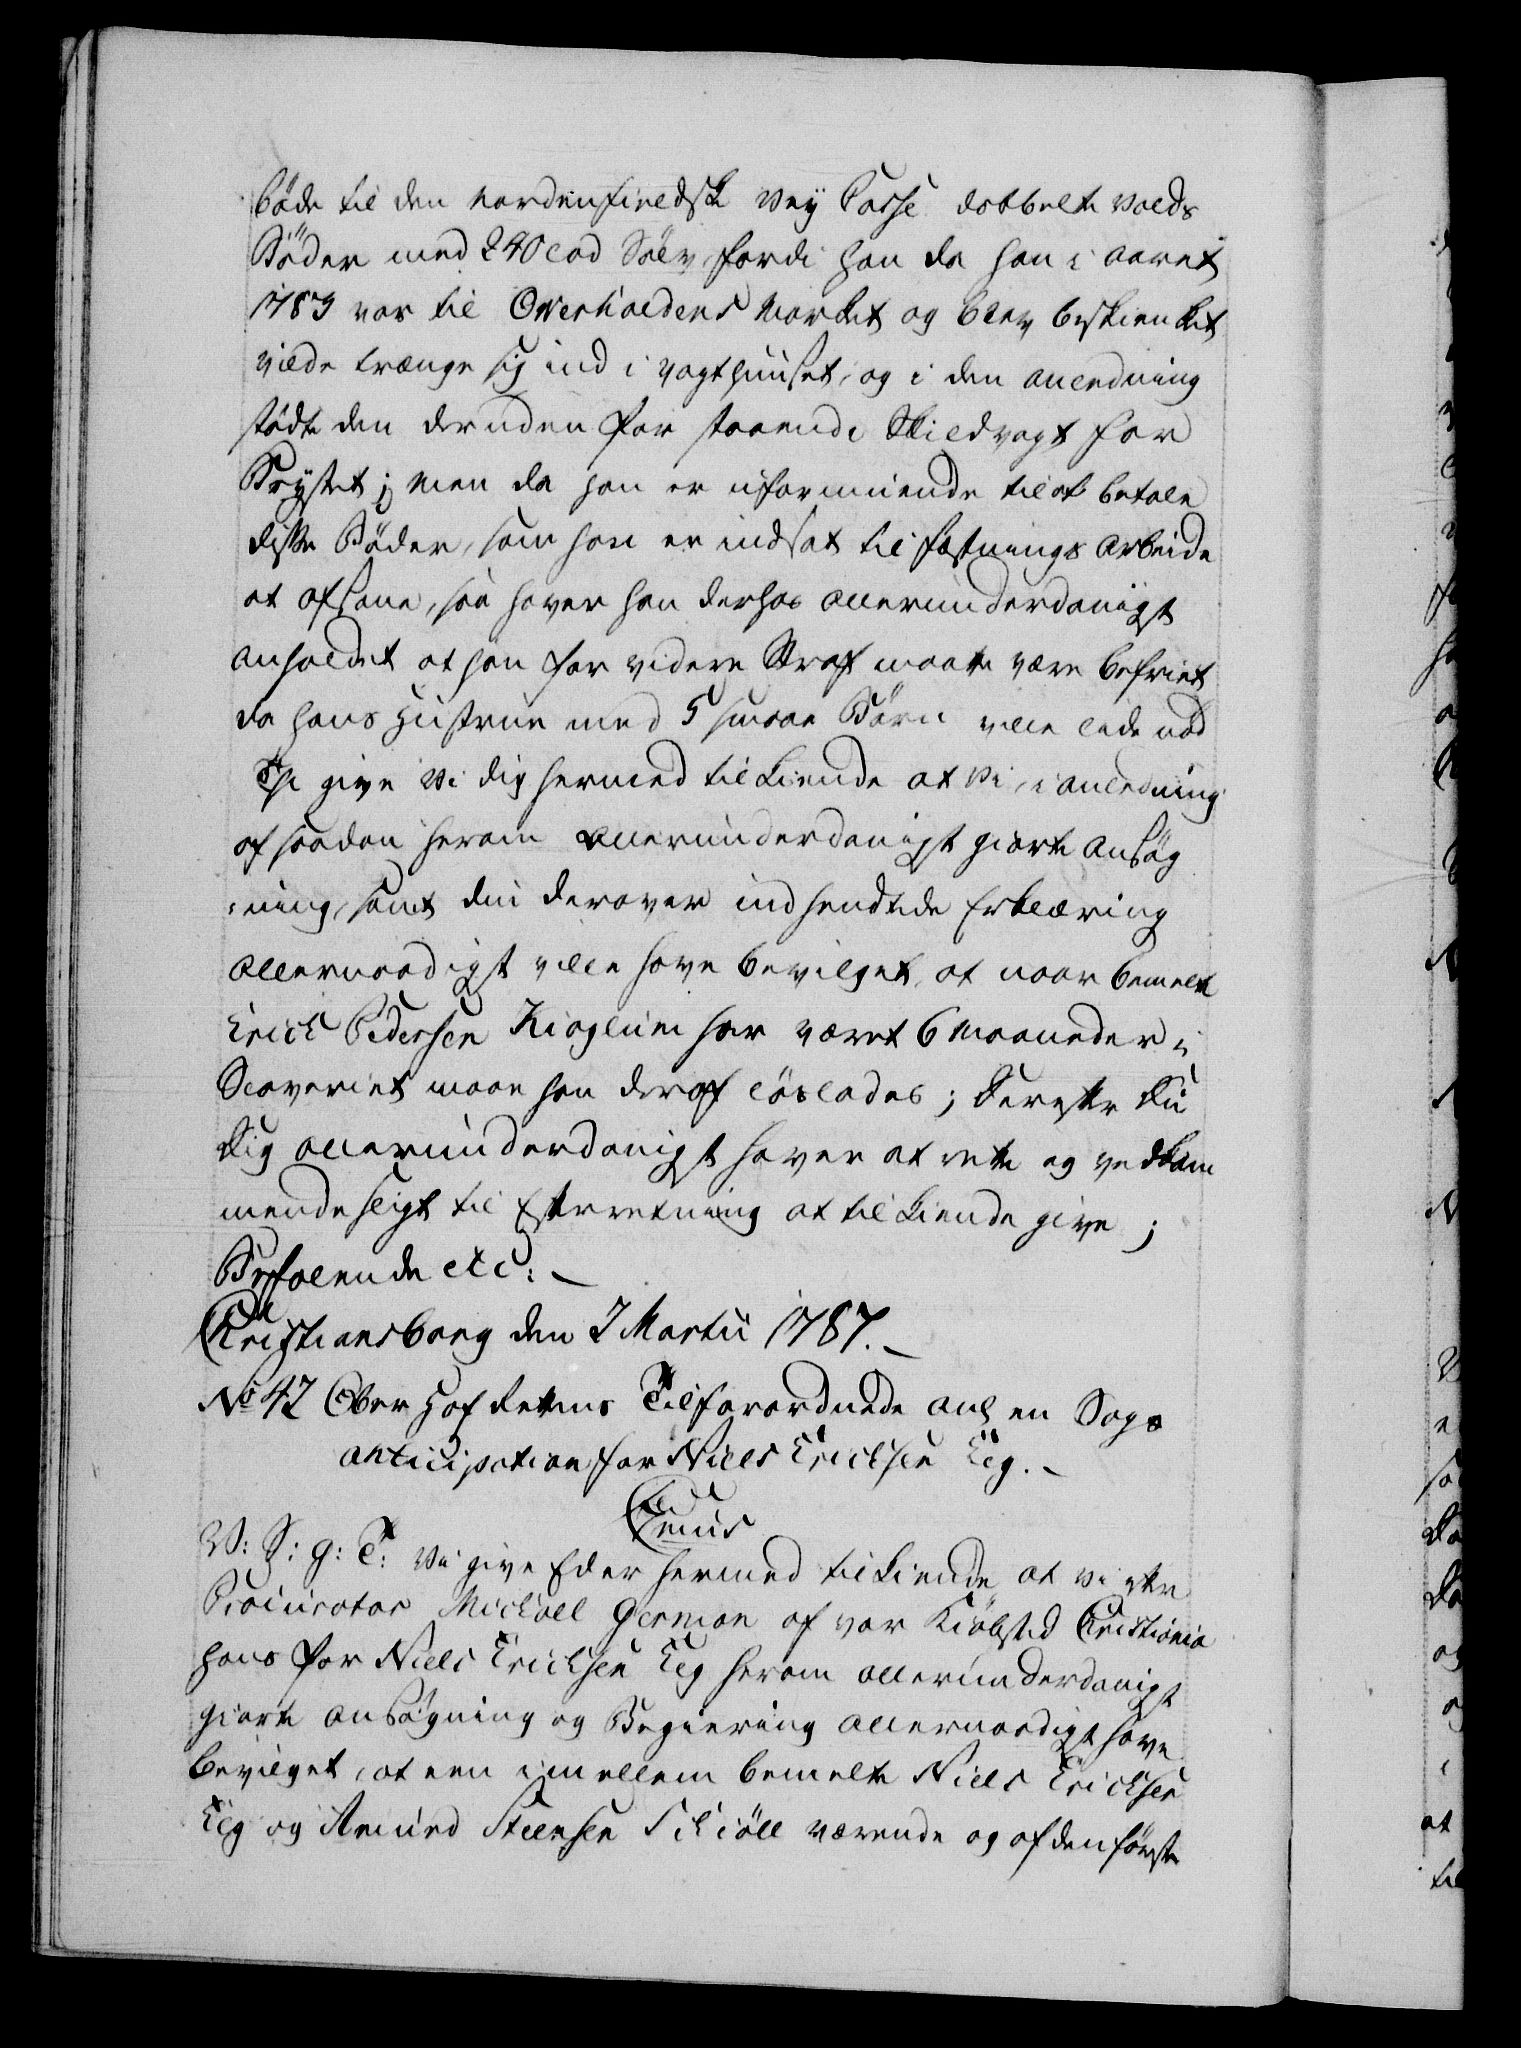 bøde til den nordenfieldske Vey Casse dobbelte Volds
Bøder med 240 Lod Sølv, fordi han da han i Aaret
1783 var til Overhaldens Market og blev beskienket
vilde trænge sig ind i Vagthuuset, og i den Anledning
stødte den derinden for staaende Skildvagt for
Brystet; Men da han er uformuende til at betale
disse Bøder, som han er indsat til Fæstnings Arbeide
at afsone, saa haver han derhos allerunderdanigst
anholdet at han for videre Straf maatte være befriet
da hans Hustrue med 5 smaae Børn ville lide nød
Thi give Vi dig hermed tilkiende at Vi, i Anledning
af saadan herom allerunderdanigst giorte Ansøg
:ning, samt din derover indsendte Erklæring
allernaadigst ville have bevilget, at naar bemelte
Erich Pedersen Kioglum har været 6 Maaneder i
Slaveriet maae han deraf løslades; Derefter Du
dig allerunderdanigst haver at rette og vedkom
mende sligt til Efterretning at tilkiende give;
Befalende etc:
Christiansborg den 2 Martii 1787.
No 42 Ober Hof Rettens Tilforordnede anl en Sags
Anticipation for Niels Ericksen Lég.
Genus
V: S: G: T: Vi give Eder hermed tilkiende at Vi efter
Procurator Michael German af vor Kiøbsted Christiania
hans for Niels Ericksen Lég herom allerunderdanigst
giorte Ansøgning og Begiering allernaadigst have
bevilget, at een imellem bemelte Niels Ericksen
Lég og Amund Steensen Skiøll værende og af den første